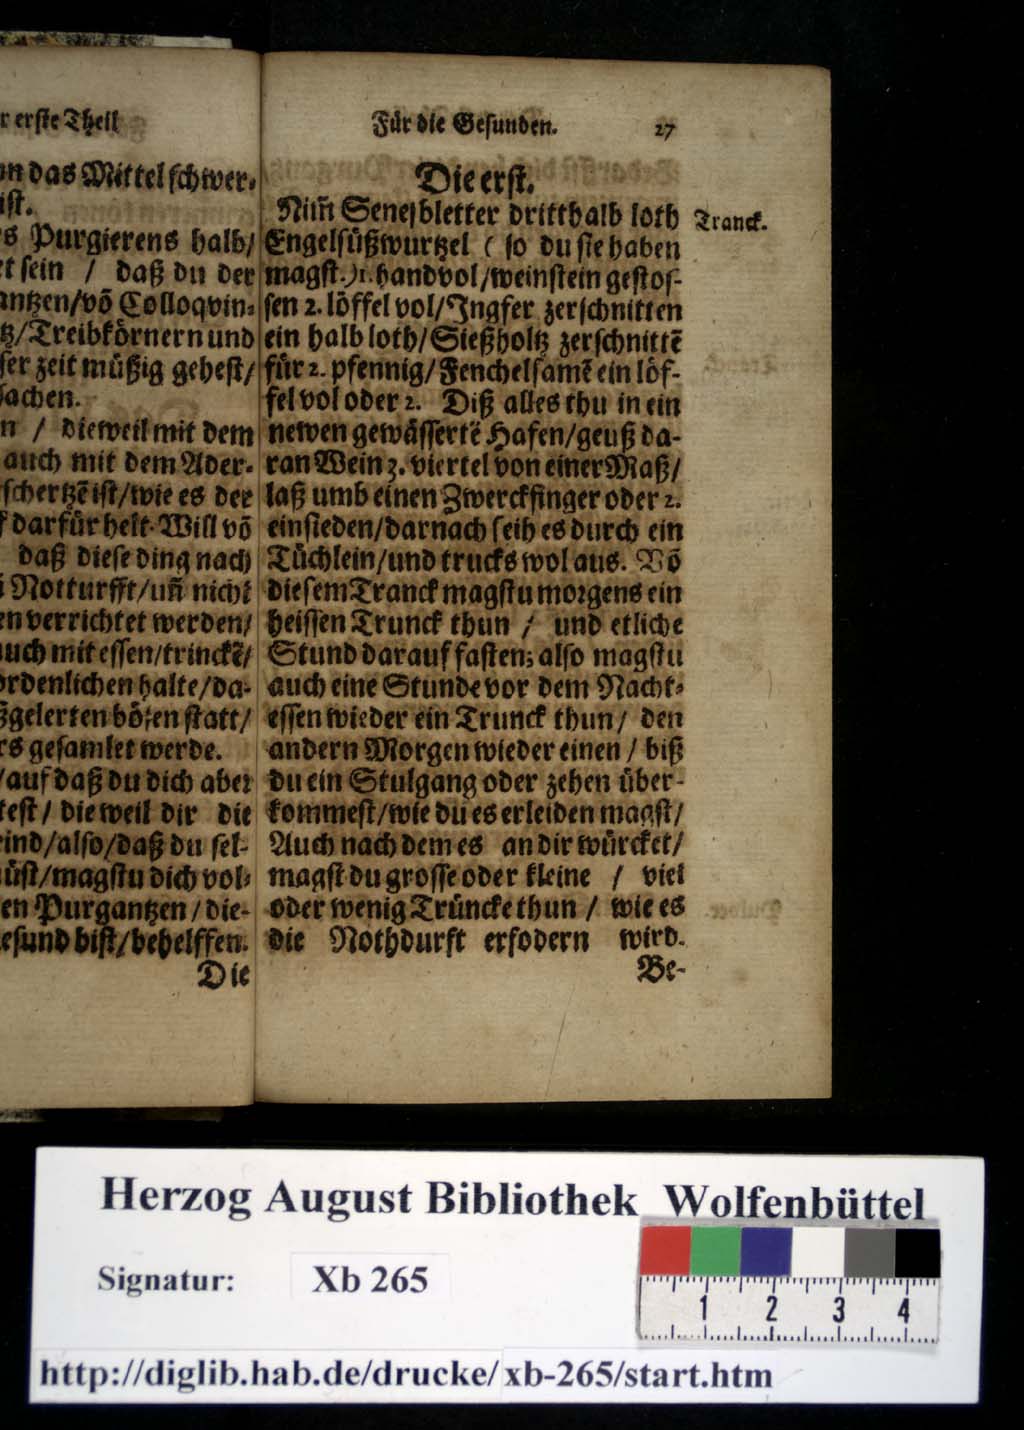 r erste Theil
in das Mittel schwer-
ist.
s Purgierens halb/
et sein / daß du der
antzen/võ Colloqvin-
tz/Treibkörnern und
ser zeit müßig gehest/
sachen.
n / dieweil mit dem
auch mit dem Ader-
schertzẽ ist/wie es der
f darfür helt. Will võ
daß diese ding nach
Notturfft/uñ nicht
en verrichtet werden/
uch mit essen/trinckẽ/
ordenlichen halte/da-
gelerten bösen statt/
rs gesamlet werde.
/auf daß du dich aber
test / dieweil dir die
eind/also/daß du sel-
üst/magstu dich vol-
en Purgantzen / die-
esund bist/behelffen.
Die
Für die Gesunden. 27
Die erst.
Nim̃ Senesbletter dritthalb loth
Tranck.
Engelsüßwurtzel ( so du sie haben
magst.) 1. handvol/weinstein gestos-
sen 2. löffel vol/Ingfer zerschnitten
ein halb loth/Sießholtz zerschnittẽ
für 2. pfennig/Fenchelsamẽ ein löf-
fel vol oder 2. Diß alles thu in ein
newen gewässertẽ Hafen/geuß da-
ran Wein 3. viertel von einer Maß/
laß umb einen Zwerckfinger oder 2.
einsieden/darnach seih es durch ein
Tüchlein/und trucks wol aus. Võ
diesem Tranck magstu morgens ein
heissen Trunck thun / und etliche
Stund darauf fasten; also magstu
auch eine Stunde vor dem Nacht-
essen wieder ein Trunck thun/ den
andern Morgen wieder einen / biß
du ein Stulgang oder zehen über-
kommest/wie du es erleiden magst/
Auch nach dem es an dir würcket/
magst du grosse oder kleine / viel
oder wenig Trüncke thun / wie es
die Nothdurft erfodern wird.
Be-
Herzog August Bibliothek Wolfenbüttel
Signatur: Xb 265
1 2 3 4
http://diglib.hab.de/drucke/xb-265/start.htm